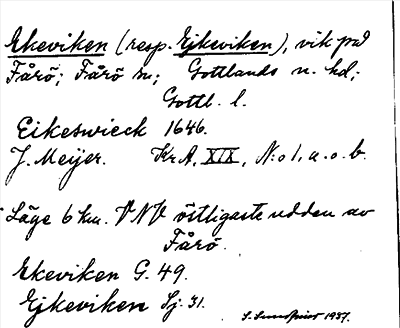 Ekeviken (resp. Ejkeviken), vik på
Fårö; Fårö sn; Gottlands n. hd;
Gottl. l.
Eikeswieck 1646.
J. Meijer. KrA, XIX, N:o 1, a. o. b.
Läge 6 km. VNV östligaste udden av
Fårö.
Ekeviken G. 49.
Ejkeviken Sj. 31.
S. Sundqvist 1937.